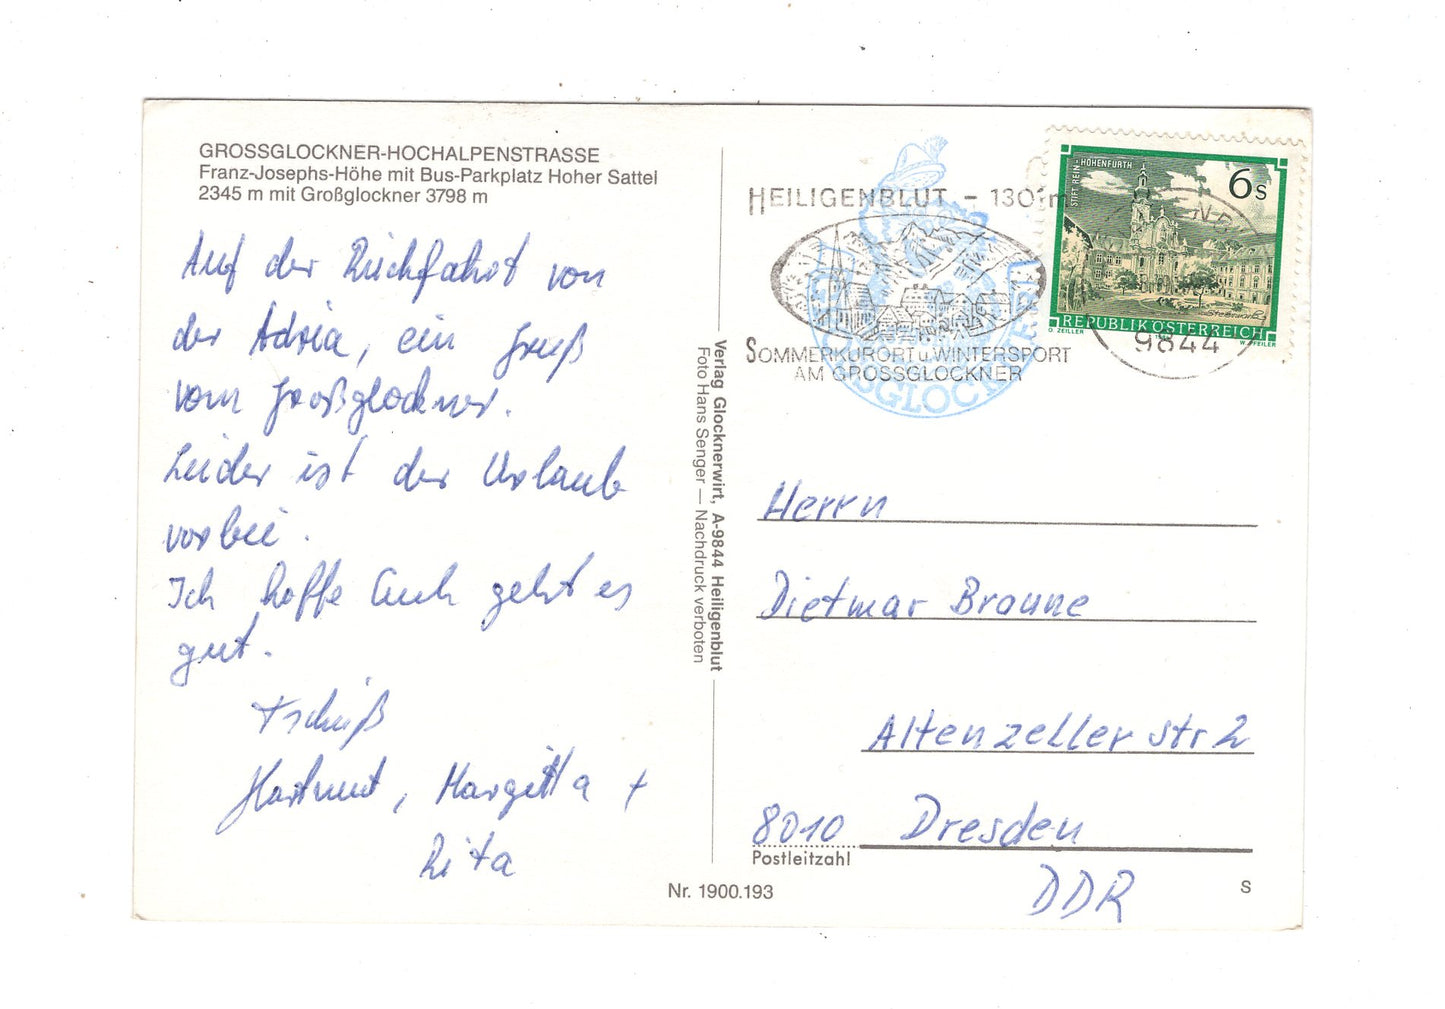 GROSSGLOCKNER-HOCHALPENSTRASSE
Franz-Josephs-Höhe mit Bus-Parkplatz Hoher Sattel
2345 m mit Großglockner 3798 m
Auf der Rückfahrt von
der Adria, ein Gruß
vom Großglockner.
Leider ist der Urlaub
vorbei.
Ich hoffe Euch geht es
gut.
Tschüß
Hartmut, Margitta +
Rita
Verlag Glocknerwirt, A-9844 Heiligenblut
Foto Hans Senger — Nachdruck verboten
Nr. 1900.193
HEILIGENBLUT - 1301m
SOMMERKURORT u. WINTERSPORT
AM GROSSGLOCKNER
STIFT REIN-HOHENFURTH
6 S
REPUBLIK ÖSTERREICH
O. ZEILLER
W. PFEILER
9844
Herrn
Dietmar Braune
Altenzeller Str 2
8010 Dresden
Postleitzahl
DDR
S